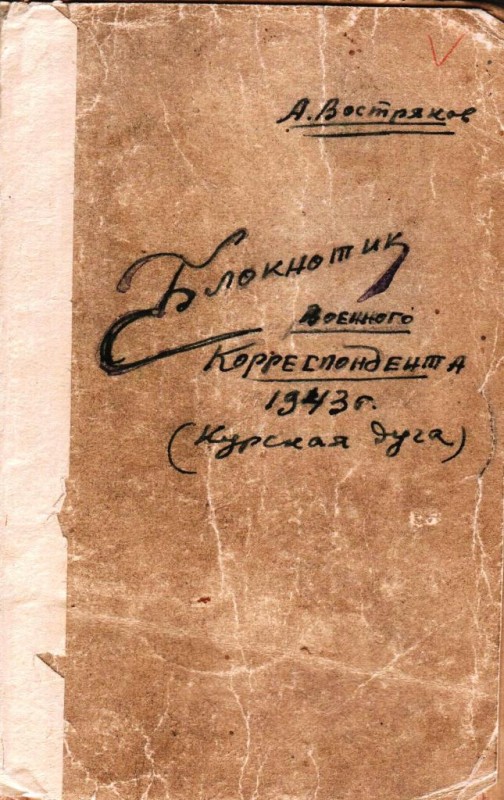 А. Востряков
Блокнотик
военного
Корреспондента
1943г.
(Курская дуга)